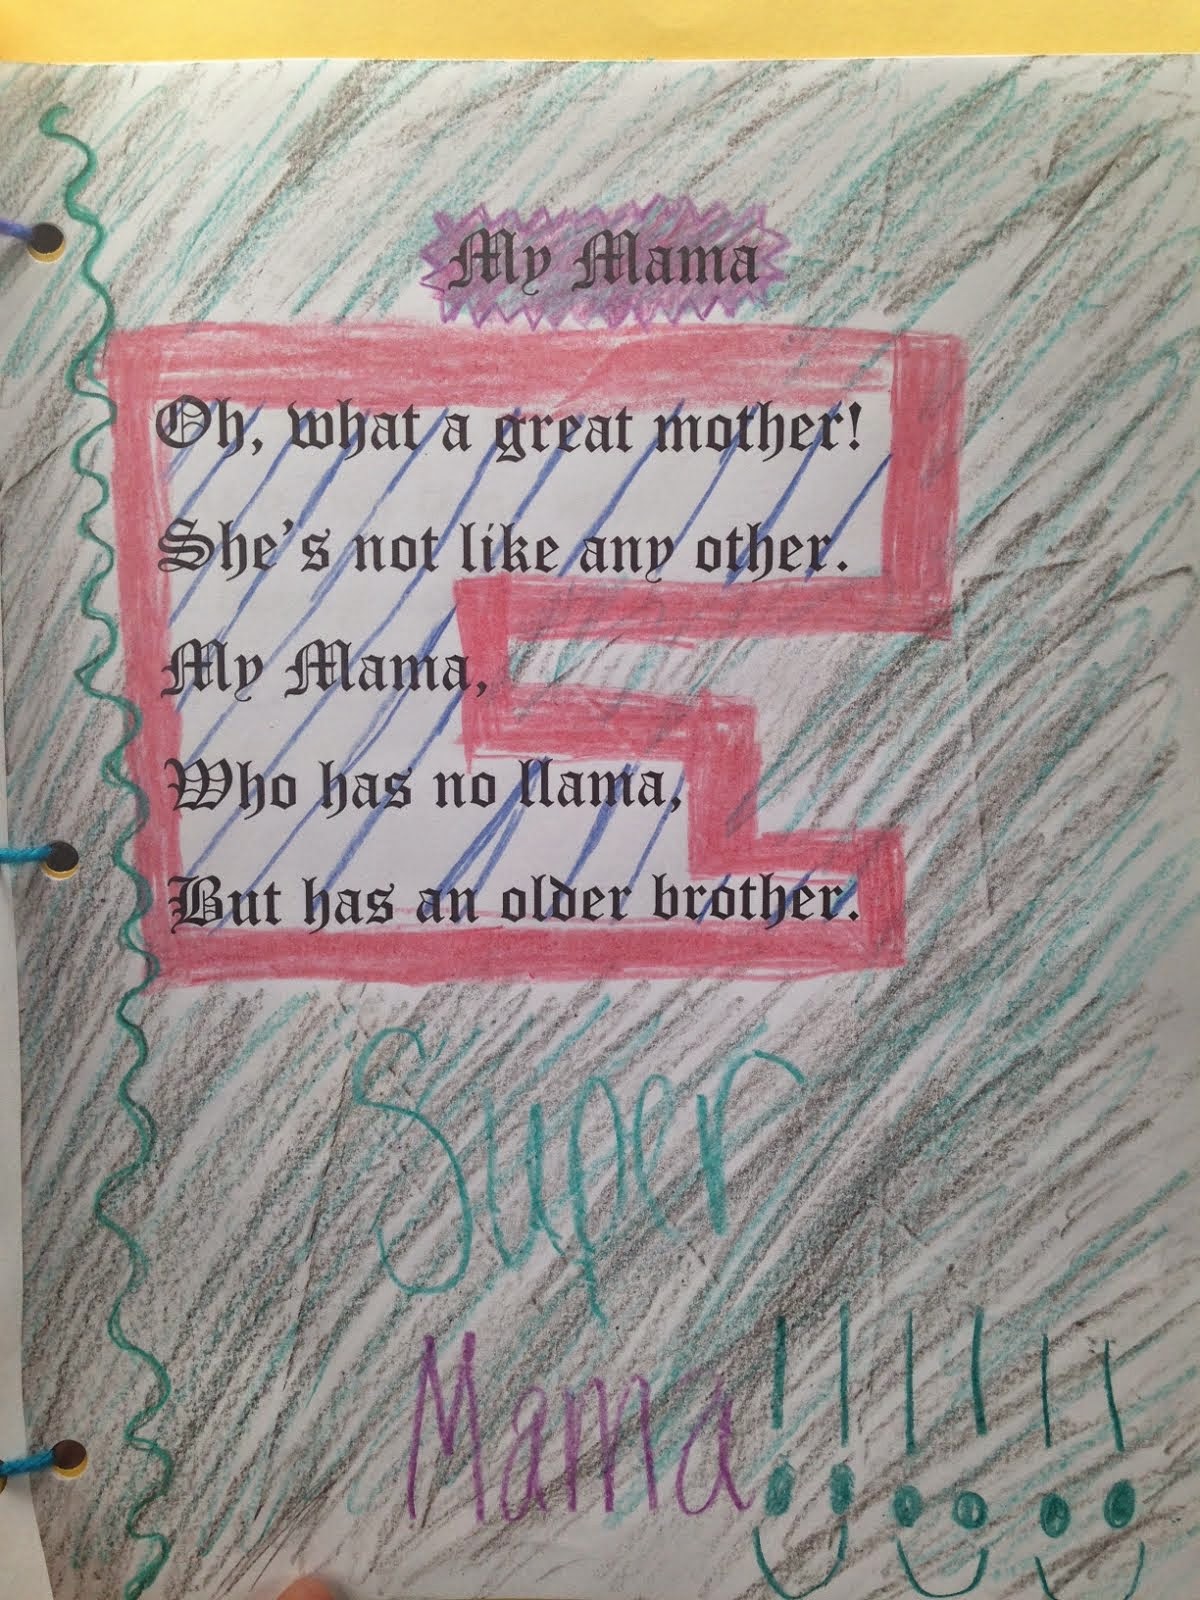 My Mama
Oh, what a great mother!
She's not like any other.
My Mama,
Who has no llama,
But has an older brother.
Super
Mama!!!!!!